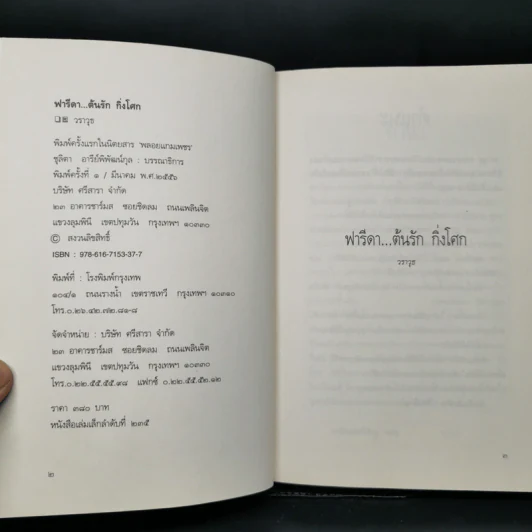 ฟารีดา...ต้นรัก กิ่งโศก
วราวุธ
พิมพ์ครั้งแรกในนิตยสาร 'พลอยแกมเพชร'
ชุลิตา อารีย์พิพัฒน์กุล : บรรณาธิการ
พิมพ์ครั้งที่ ๑ / มีนาคม พ.ศ.๒๕๕๖
บริษัท ศรีสารา จำกัด
๒๓ อาคารชาร์มส ซอยชิดลม ถนนเพลินจิต
แขวงลุมพินี เขตปทุมวัน กรุงเทพฯ ๑๐๓๓๐
© สงวนลิขสิทธิ์
ISBN : 978-616-7153-37-7
พิมพ์ที่ : โรงพิมพ์กรุงเทพ
๑๐๔/๑ ถนนรางน้ำ เขตราชเทวี กรุงเทพฯ ๑๐๓๑๐
โทร.๐.๒๖.๔๒.๗๒.๘๑-๘
จัดจำหน่าย : บริษัท ศรีสารา จำกัด
๒๓ อาคารชาร์มส ซอยชิดลม ถนนเพลินจิต
แขวงลุมพินี เขตปทุมวัน กรุงเทพฯ ๑๐๓๓๐
โทร.๐.๒๒.๕๕.๕๕.๙๘ แฟกซ์ ๐.๒๒.๕๕.๕๒.๑๒
ราคา ๓๘๐ บาท
หนังสือเล่มเล็กลำดับที่ ๒๓๕
๒
ฟารีดา...ต้นรัก กิ่งโศก
วราวุธ
๓